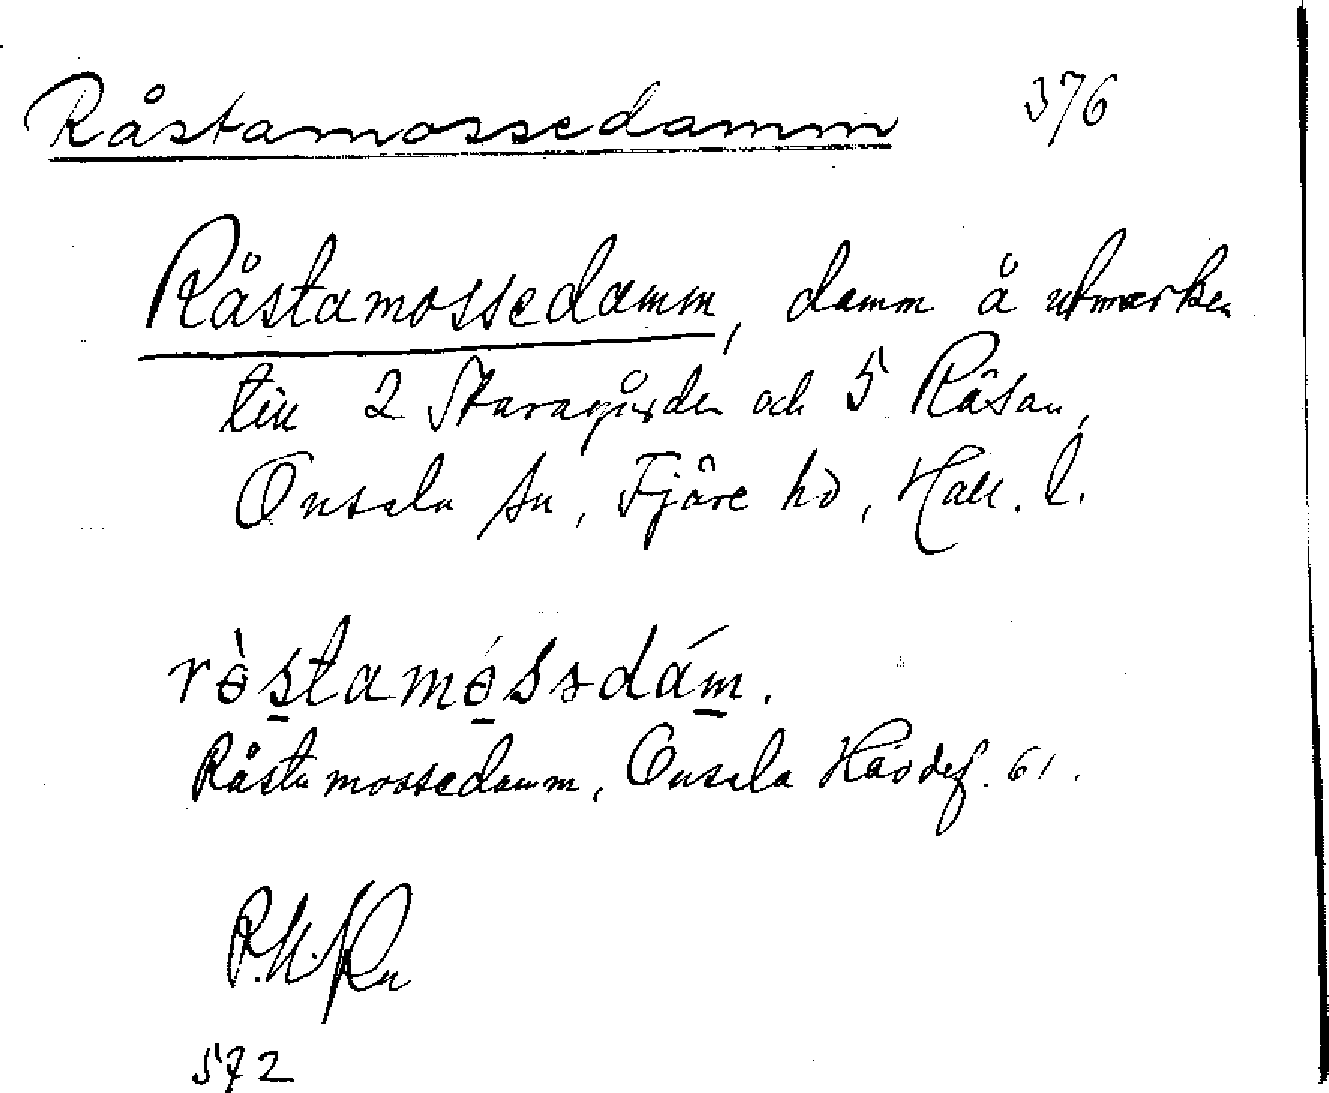 Råstamossedamm 376
Råstamossedamm, damm å utmarken
till 2 Staragården och 5 Råsan,
Onsala sn, Fjäre hd, Hall. l.
rɵ̀stamɵ́ssdám.
Råstamossedamm, Onsala 61.
572